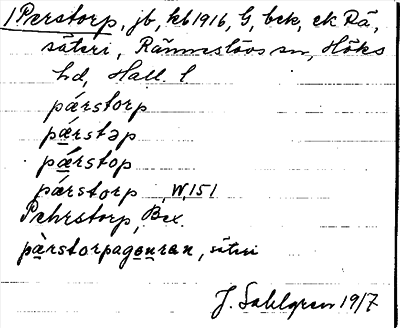 1 Perstorp, jb, kb 1916, G, bek, ek Rä,
säteri, Ränneslövs sn, Höks
hd, Hall. l
párstorp
párstəp
párstop
párstorp W, 151
Pehrstorp, Bex.
pàrstorpagouran, säteri
J. Sahlgren 19/7